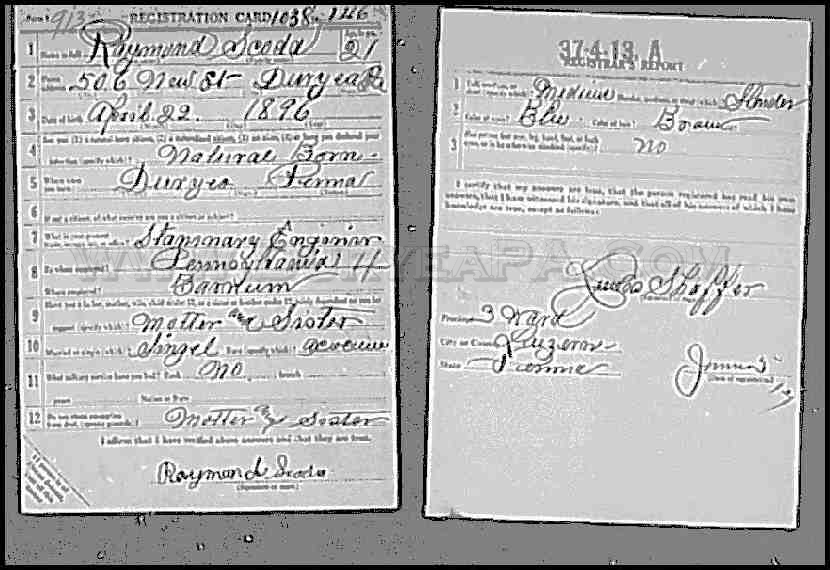 Form 1 913 REGISTRATION CARD 1038 No. 126
1 Name in full Raymond Scoda Age in yrs. 21
2 Home address 506 New St Duryea Pa
3 Date of birth April 22 1896
4 Are you (1) a natural-born citizen, (2) a naturalized citizen, (3) an alien, (4) or have you declared your
intention (specify which)? Natural Born
5 Where were you born? Duryea Penna
6 If not a citizen, of what country are you a citizen or subject?
7 What is your present trade, occupation, or office? Stapinary Enginier
8 By whom employed? Pennsylvania
Where employed? Barnum
9 Have you a father, mother, wife, child under 12, or a sister or brother under 12, solely dependent on you for
support (specify which)? Motter and Sister
10 Married or single (which)? Singel Race (specify which)?
11 What military service have you had? Rank No branch
years Nation or State
12 Do you claim exemption from draft (specify grounds)? Motter and Sister
I affirm that I have verified above answers and that they are true.
Raymond Scoda
(Signature or mark)
37-4-13. A
REGISTRAR'S REPORT
1 Tall, medium, or short (specify which)? Medium Slender, medium, or stout (which)? Slinder
2 Color of eyes? Blue Color of hair? Brown
3 Has person lost arm, leg, hand, foot, or both eyes, or is he otherwise disabled (specify)? no
I certify that my answers are true, that the person registered has read his own
answers, that I have witnessed his signature, and that all of his answers of which I have
knowledge are true, except as follows:
Shaffer
Precinct 3 Ward
City or County Luzern
State Penna
(Date of registration)